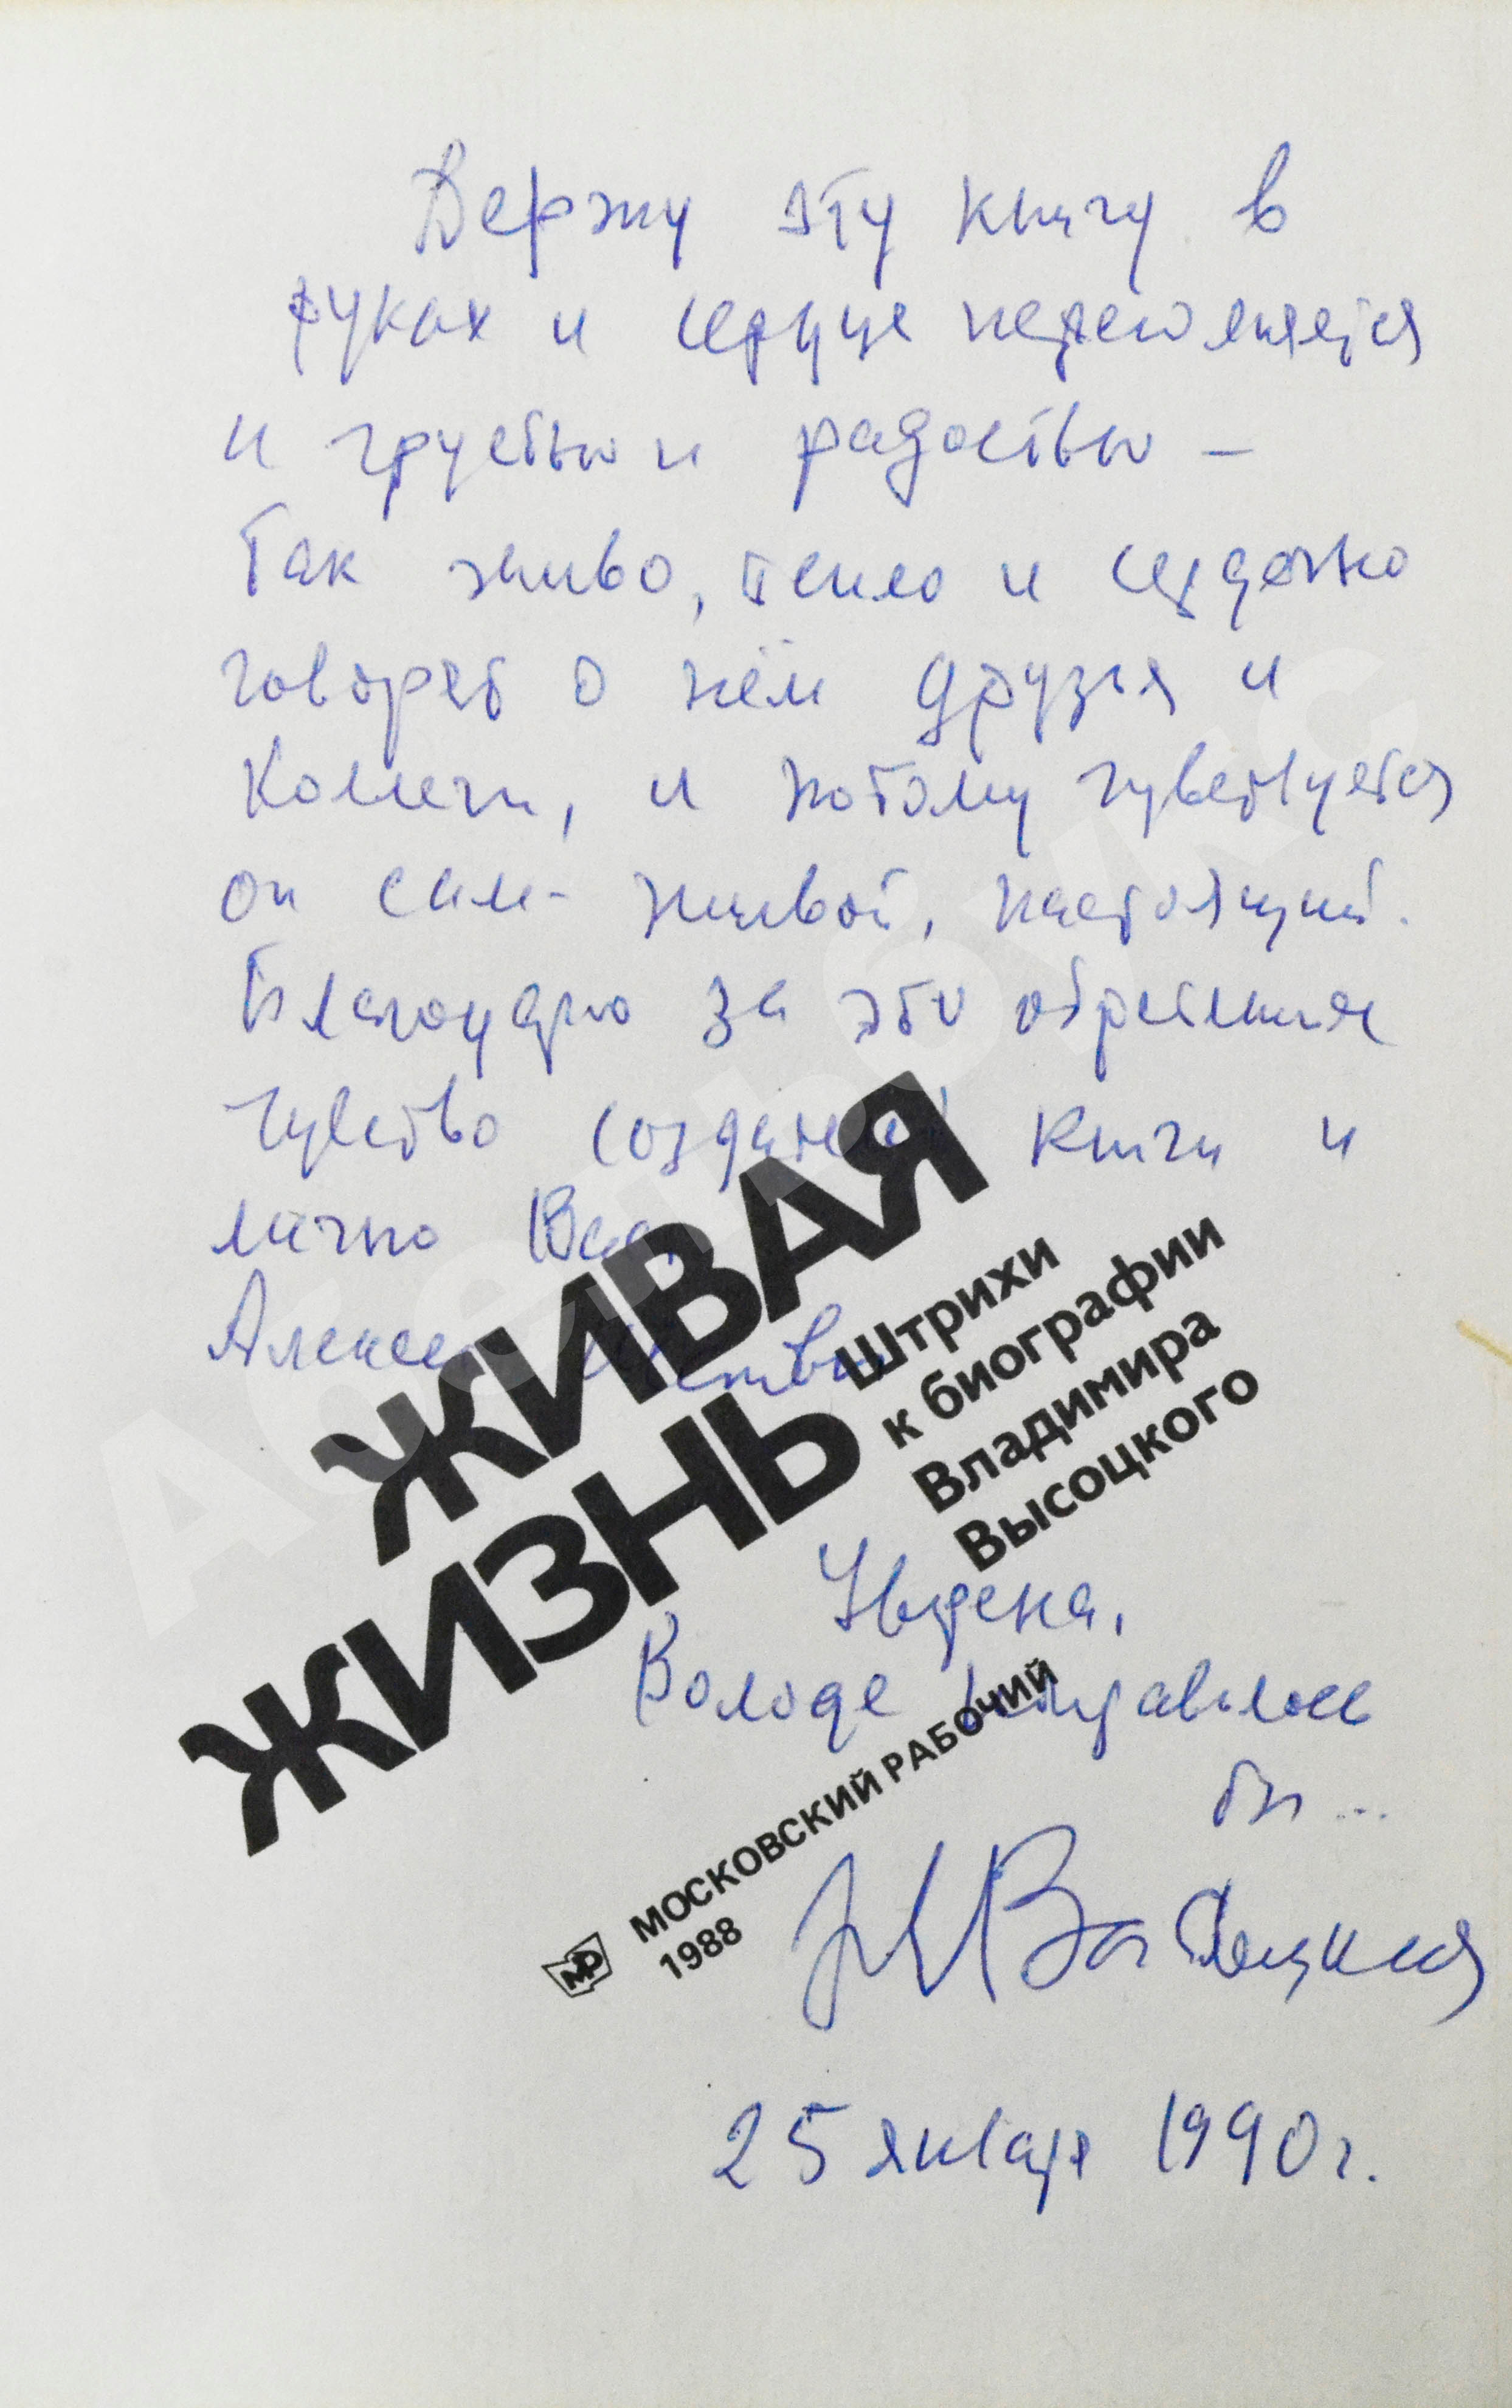 Держу эту книгу в
руках и сердце переполняется
и грустью и радостью –
Так живо, тепло и сердечно
говорят о нём друзья и
коллеги, и потому чувствуется
он сам – живой, настоящий.
Благодарю за это обретение
чувство создателей книги и
лично Вас,
Алексей
ЖИВАЯ
ЖИЗНЬ
Штрихи
к биографии
Владимира
Высоцкого
Уверена,
Володе понравилось
бы...
25 января 1990 г.
МОСКОВСКИЙ РАБОЧИЙ
1988
МР